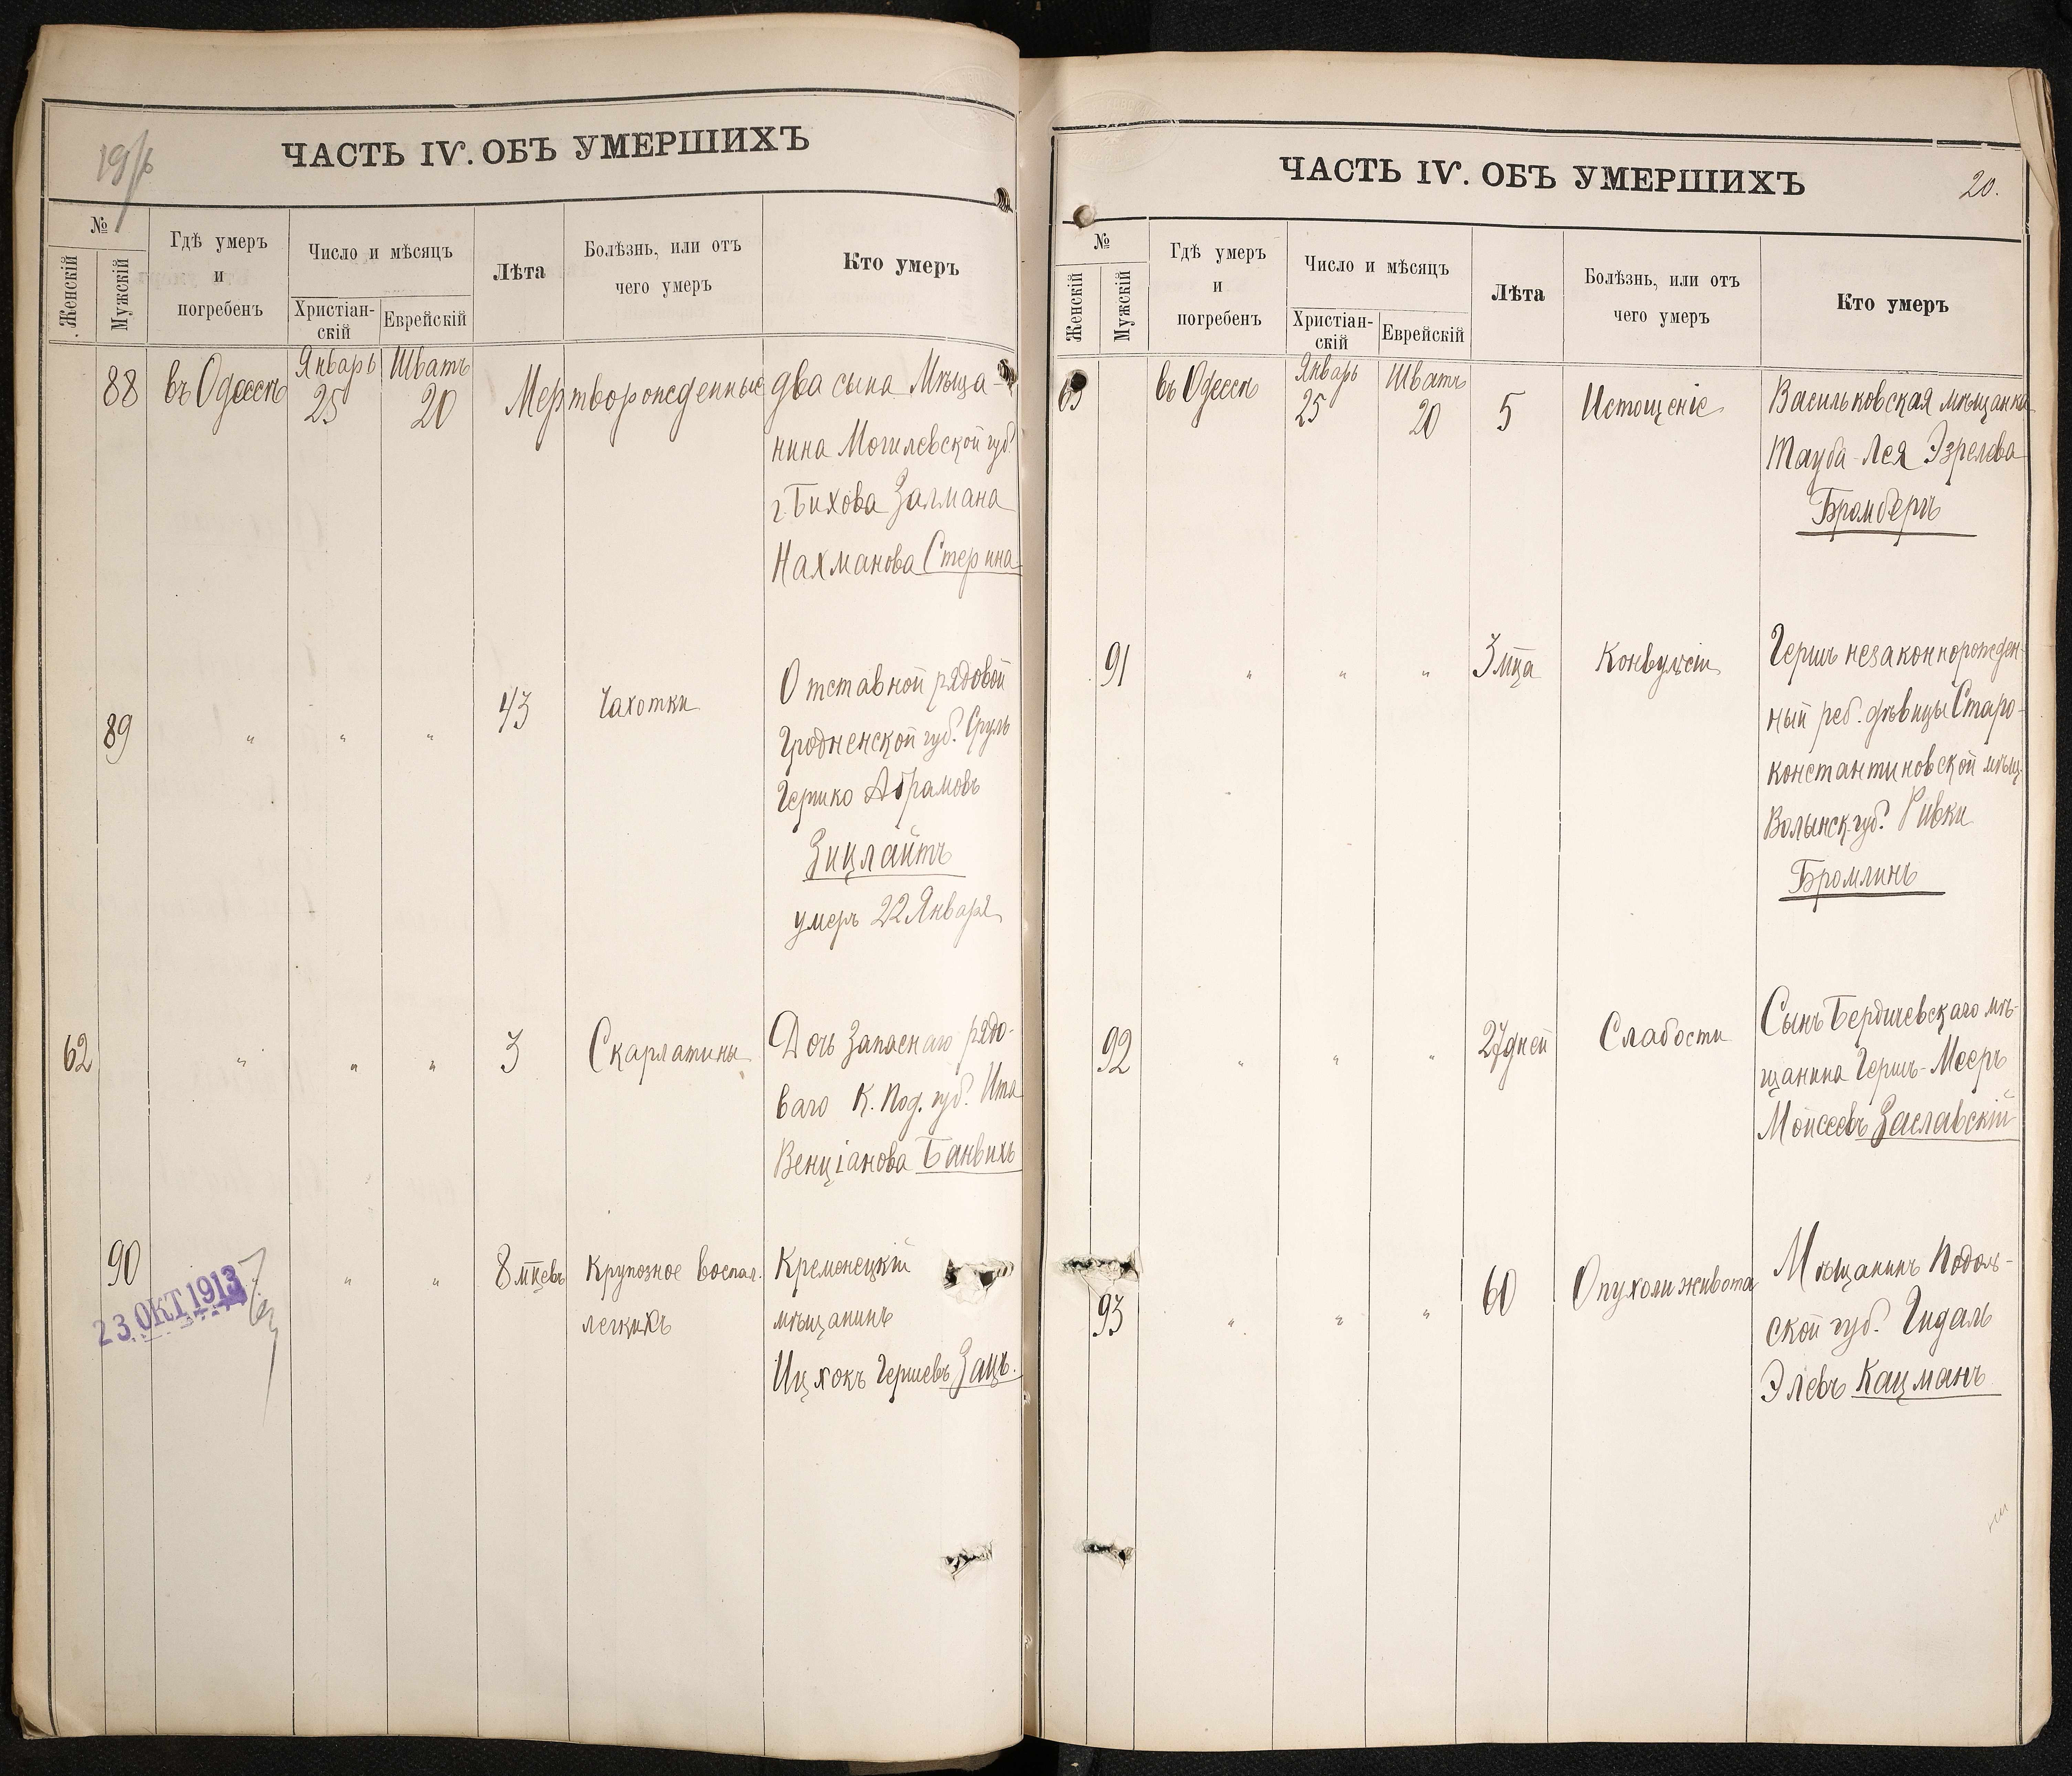 ЧАСТЬ IV. ОБЪ УМЕРШИХЪ
№
Женскій
Мужскій
Гдѣ умеръ
и
погребенъ
Число и мѣсяцъ
Христіан-
скій
Еврейскій
Лѣта
Болѣзнь, или отъ
чего умеръ
Кто умеръ
88 въ Одессѣ Январь 25 Шватъ 20 Мертворожденные два сына Мѣща-
нина Могилевской губ.
г. Бихова Залмана
Нахманова Стерина
89 " " " 43 Чахотки Отставной рядовой
Гродненской губ. Сруль
Гершко Абрамовъ
Зицлайтъ
умеръ 22 Января
62 " " " 3 Скарлатины Дочь Запаснаго рядо-
ваго К. Под. губ. Ита
Венціанова Банвихъ
90 " " " 8 мѣцевъ Крупозное воспал. Кременецкій
легкихъ мѣщанинъ
Ицхокъ Гершевъ Зацъ.
23 ОКТ 1913
ЧАСТЬ IV. ОБЪ УМЕРШИХЪ
20.
№
Женскій
Мужскій
Гдѣ умеръ
и
погребенъ
Число и мѣсяцъ
Христіан-
скій
Еврейскій
Лѣта
Болѣзнь, или отъ
чего умеръ
Кто умеръ
63 въ Одессѣ Январь 25 Шватъ 20 5 Истощеніе Васильковская мѣщанка
Тауба-Лея Эзрелева
Бромбергъ
91 " " " 3 мца Конвульсіи Гершъ незаконнорожден-
ный реб. дѣвицы Старо-
константиновской мѣщ.
Волынск. губ. Ривки
Бромлинъ
92 " " " 27 дней Слабости Сынъ Бердичевскаго мѣ-
щанина Гершъ-Мееръ
Мойсеевъ Заславскій
93 " " " 60 Опухоли живота Мѣщанинъ Подоль-
ской губ. Гидаль
Элевъ Кацманъ